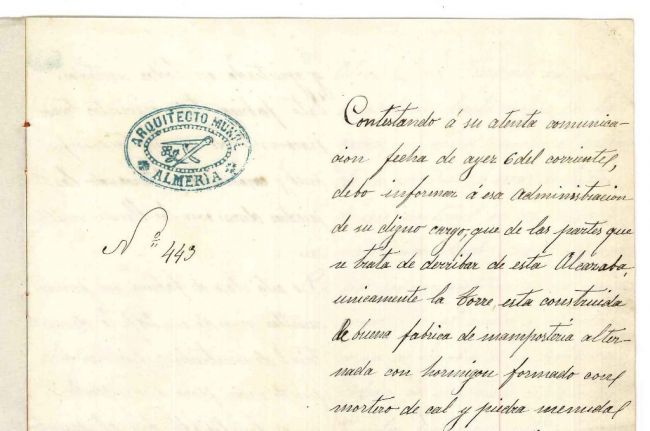 ARQUITECTO MUNPL
ALMERIA
Nº 443
Contestando á su atenta comunica-
cion fecha de ayer 6 del corriente,
debo informar á esa Administracion
de su digno cargo, que de las partes que
se trata de derribar de esta Alcazaba,
unicamente la Torre, esta construida
de buena fabrica de mamposteria alter-
nada con hormigon formado con
mortero de cal y piedra menuda